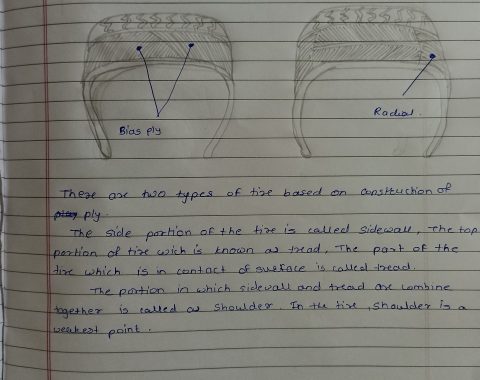 Bias ply
Radial.
There are two types of tire based on constituction of
ply.
The side portion of the tire is called sidewall, The top
portion of tire wich is known as tread, The part of the
tire which is in contact of surface is called tread.
The portion in which sidewall and tread are combine
together is called as shoulder. In the tire, shoulder is a
weakest point.